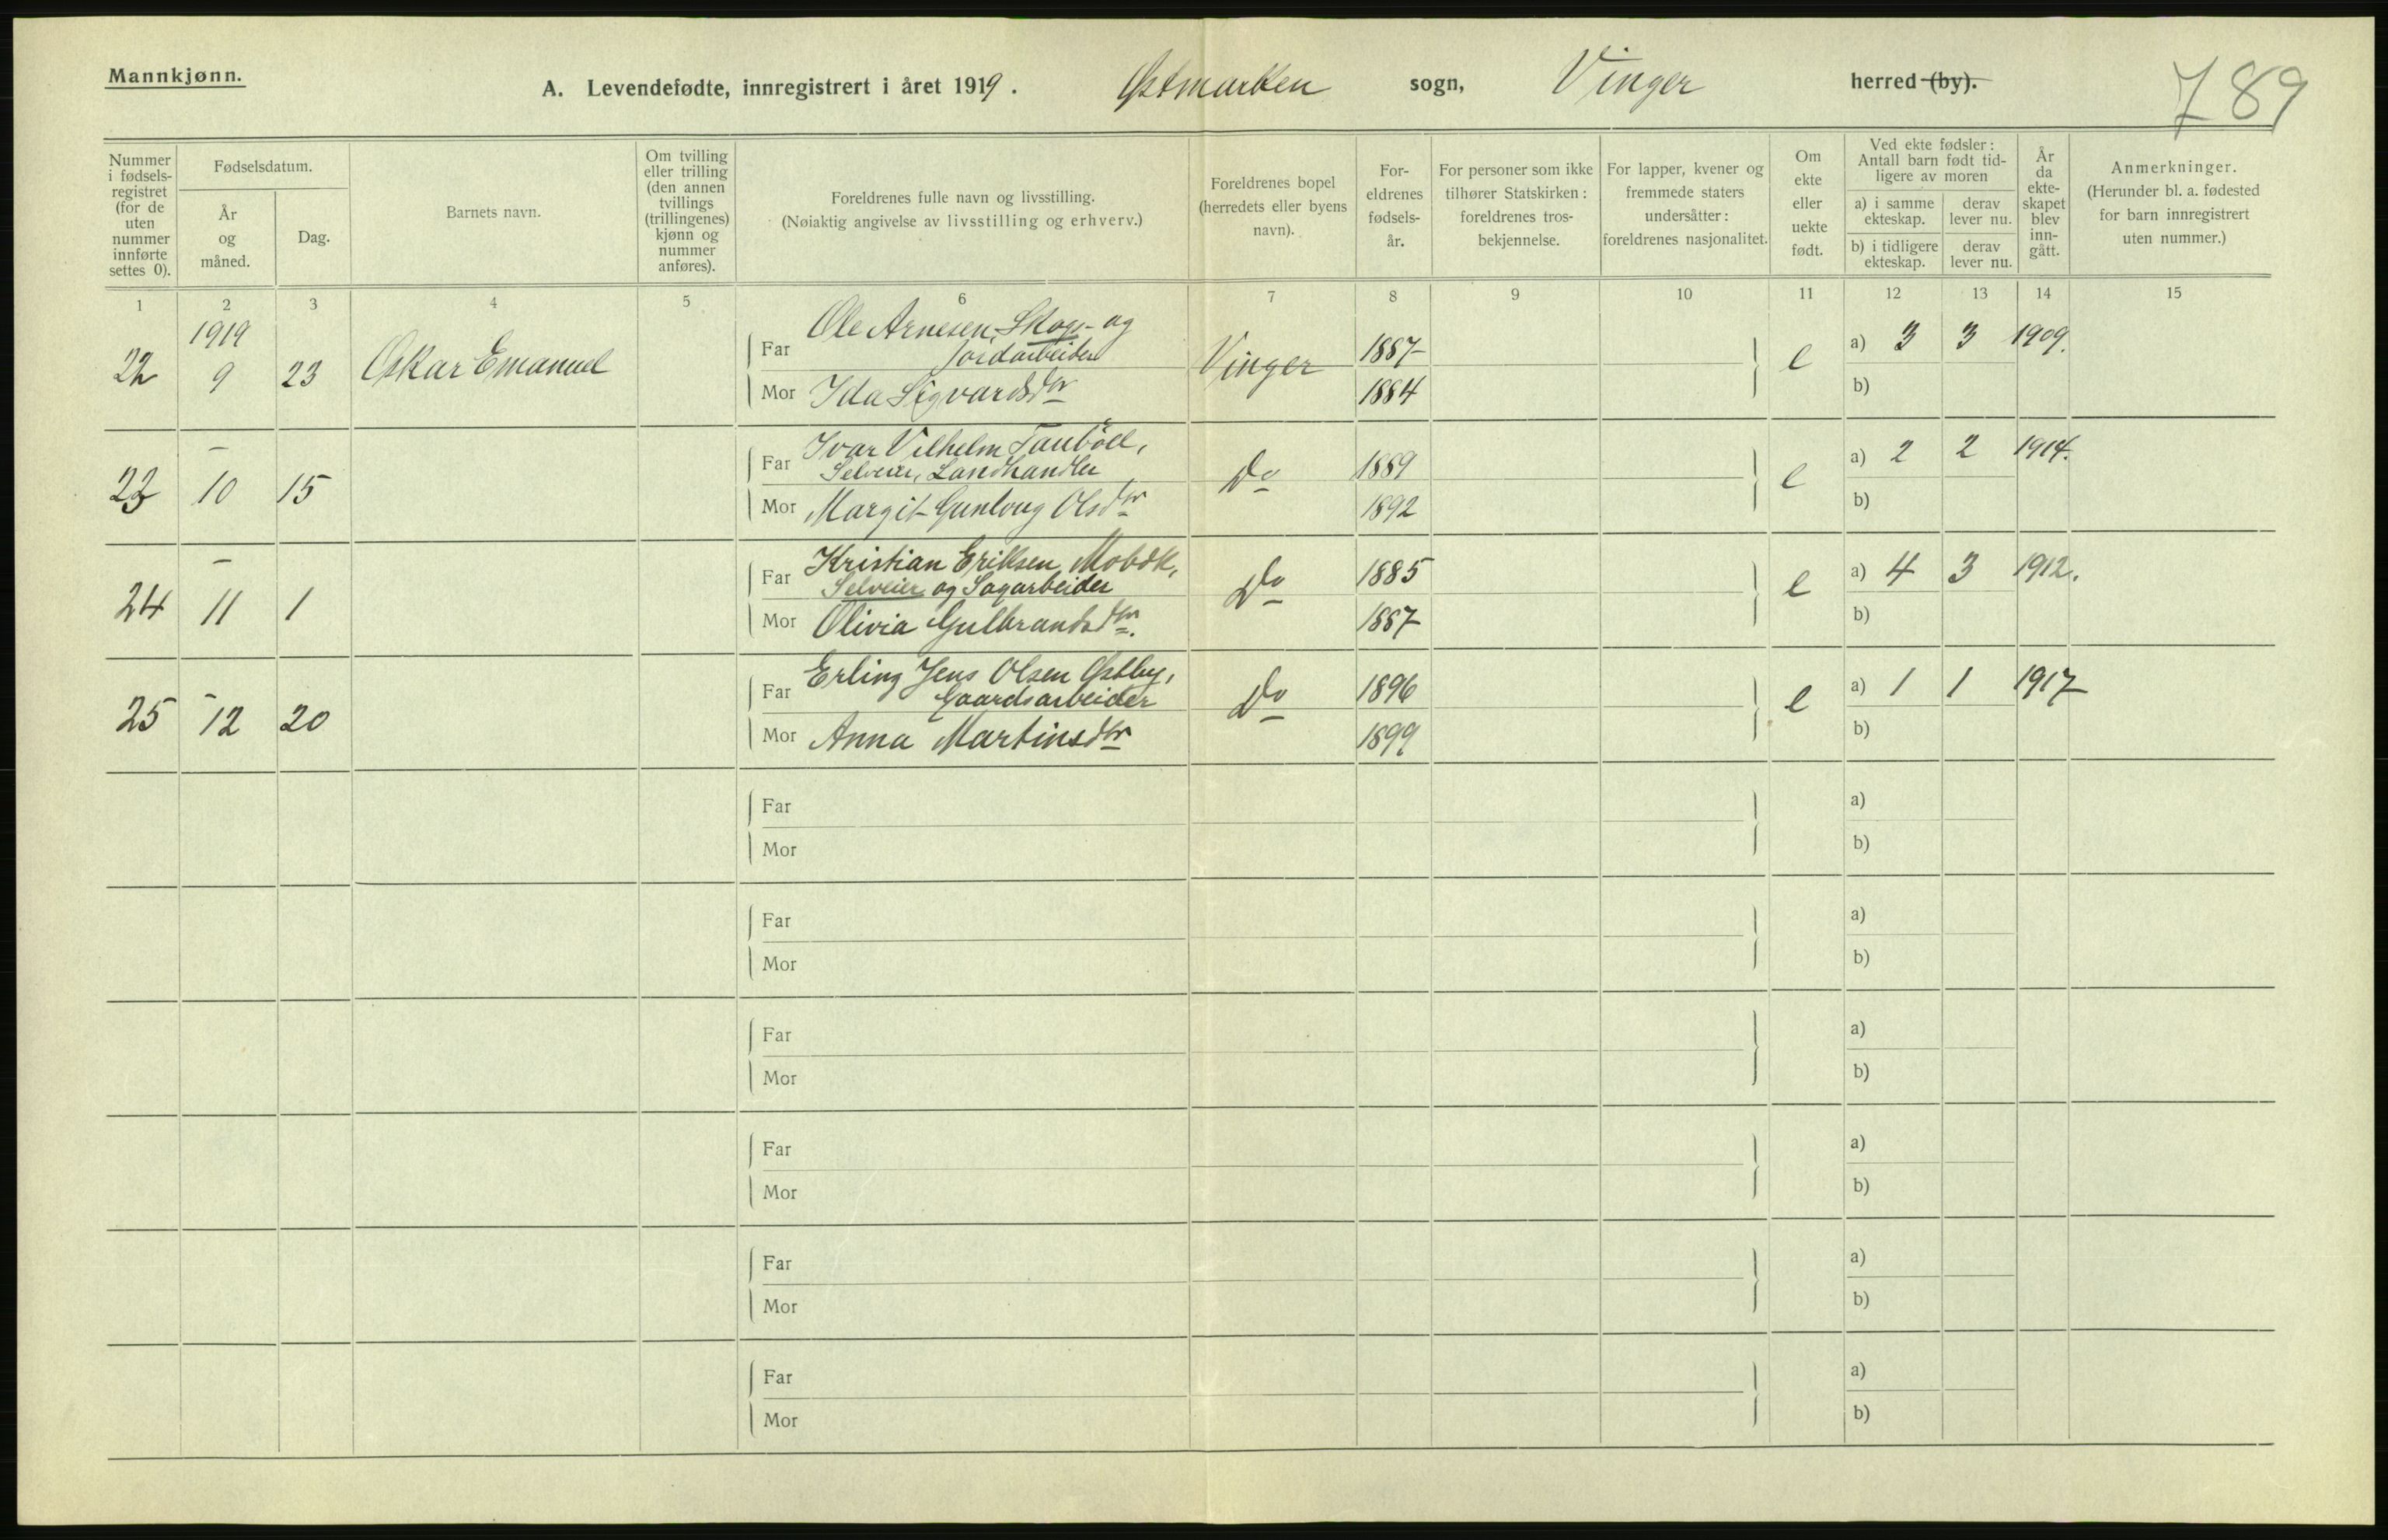 Mannkjønn.
A. Levendefødte, innregistrert i året 1919. Østmarken sogn, Vinger herred (by).
789
Nummer i fødselsregistret (for de uten nummer innførte settes 0).
Fødselsdatum.
År og måned.
Dag.
Barnets navn.
Om tvilling eller trilling (den annen tvillings (trillingenes) kjønn og nummer anføres).
Foreldrenes fulle navn og livsstilling.
(Nøiaktig angivelse av livsstilling og erhverv.)
Foreldrenes bopel (herredets eller byens navn).
Foreldrenes fødselsår.
For personer som ikke tilhører Statskirken: foreldrenes trosbekjennelse.
For lapper, kvener og fremmede staters undersåtter: foreldrenes nasjonalitet.
Om ekte eller uekte født.
Ved ekte fødsler: Antall barn født tidligere av moren
a) i samme ekteskap.
derav lever nu.
b) i tidligere ekteskap.
derav lever nu.
År da ekteskapet blev inngått.
Anmerkninger.
(Herunder bl. a. fødested for barn innregistrert uten nummer.)
1 2 3 4 5 6 7 8 9 10 11 12 13 14 15
1919
22 9 23 Oskar Emanuel
Far Ole Arnesen, Skog- og
Jordarbeider
Vinger 1887 e a) 3 3 1909.
Mor Ida Sigvardsdtr 1884 b)
–
23 10 15
Far Ivar Vilhelm Taubøll,
Selveier, Landhandler
Do 1889 e a) 2 2 1914.
Mor Margit Gunloug Olsdtr 1892 b)
–
24 11 1
Far Kristian Eriksen Mobæk,
Selveier og Sagarbeider
Do 1885 e a) 4 3 1912.
Mor Olivia Gulbrandsdtr. 1887 b)
–
25 12 20
Far Erling Jens Olsen Østby,
Gaardsarbeider
Do 1896 e a) 1 1 1917
Mor Anna Martinsdtr 1899 b)
Far a)
Mor b)
Far a)
Mor b)
Far a)
Mor b)
Far a)
Mor b)
Far a)
Mor b)
Far a)
Mor b)